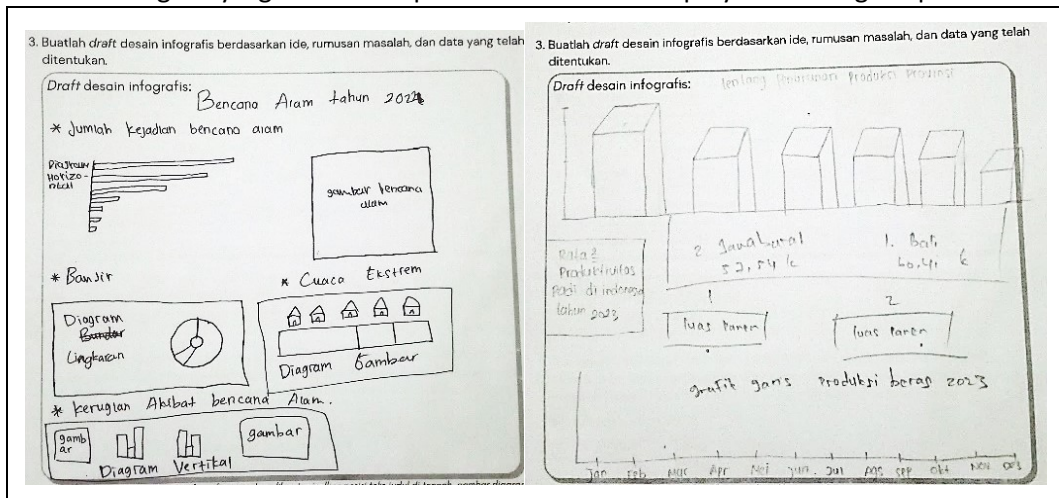 3. Buatlah draft desain infografis berdasarkan ide, rumusan masalah, dan data yang telah
ditentukan.
Draft desain infografis:
Bencana Alam tahun 2024
* Jumlah kejadian bencana alam
Diagram
Horizo-
ntal
gambar bencana
alam
* Banjir
* Cuaca Ekstrem
Diagram
Lingkaran
Diagram Gambar
* kerugian Akibat bencana Alam.
gamb
ar
Diagram Vertikal
gambar
3. Buatlah draft desain infografis berdasarkan ide, rumusan masalah, dan data yang telah
ditentukan.
Draft desain infografis:
tentang Produksi Provinsi
Rata2
Produktivitas
Padi di indonesia
tahun 2023
2 Jawa barat
52,54 k
1. Bali
60,41 k
1
luas Panen
2
luas Panen
grafik garis Produksi beras 2023
Jan Feb Mar Apr Mei Jun. Jul Ags sep okt Nov Des